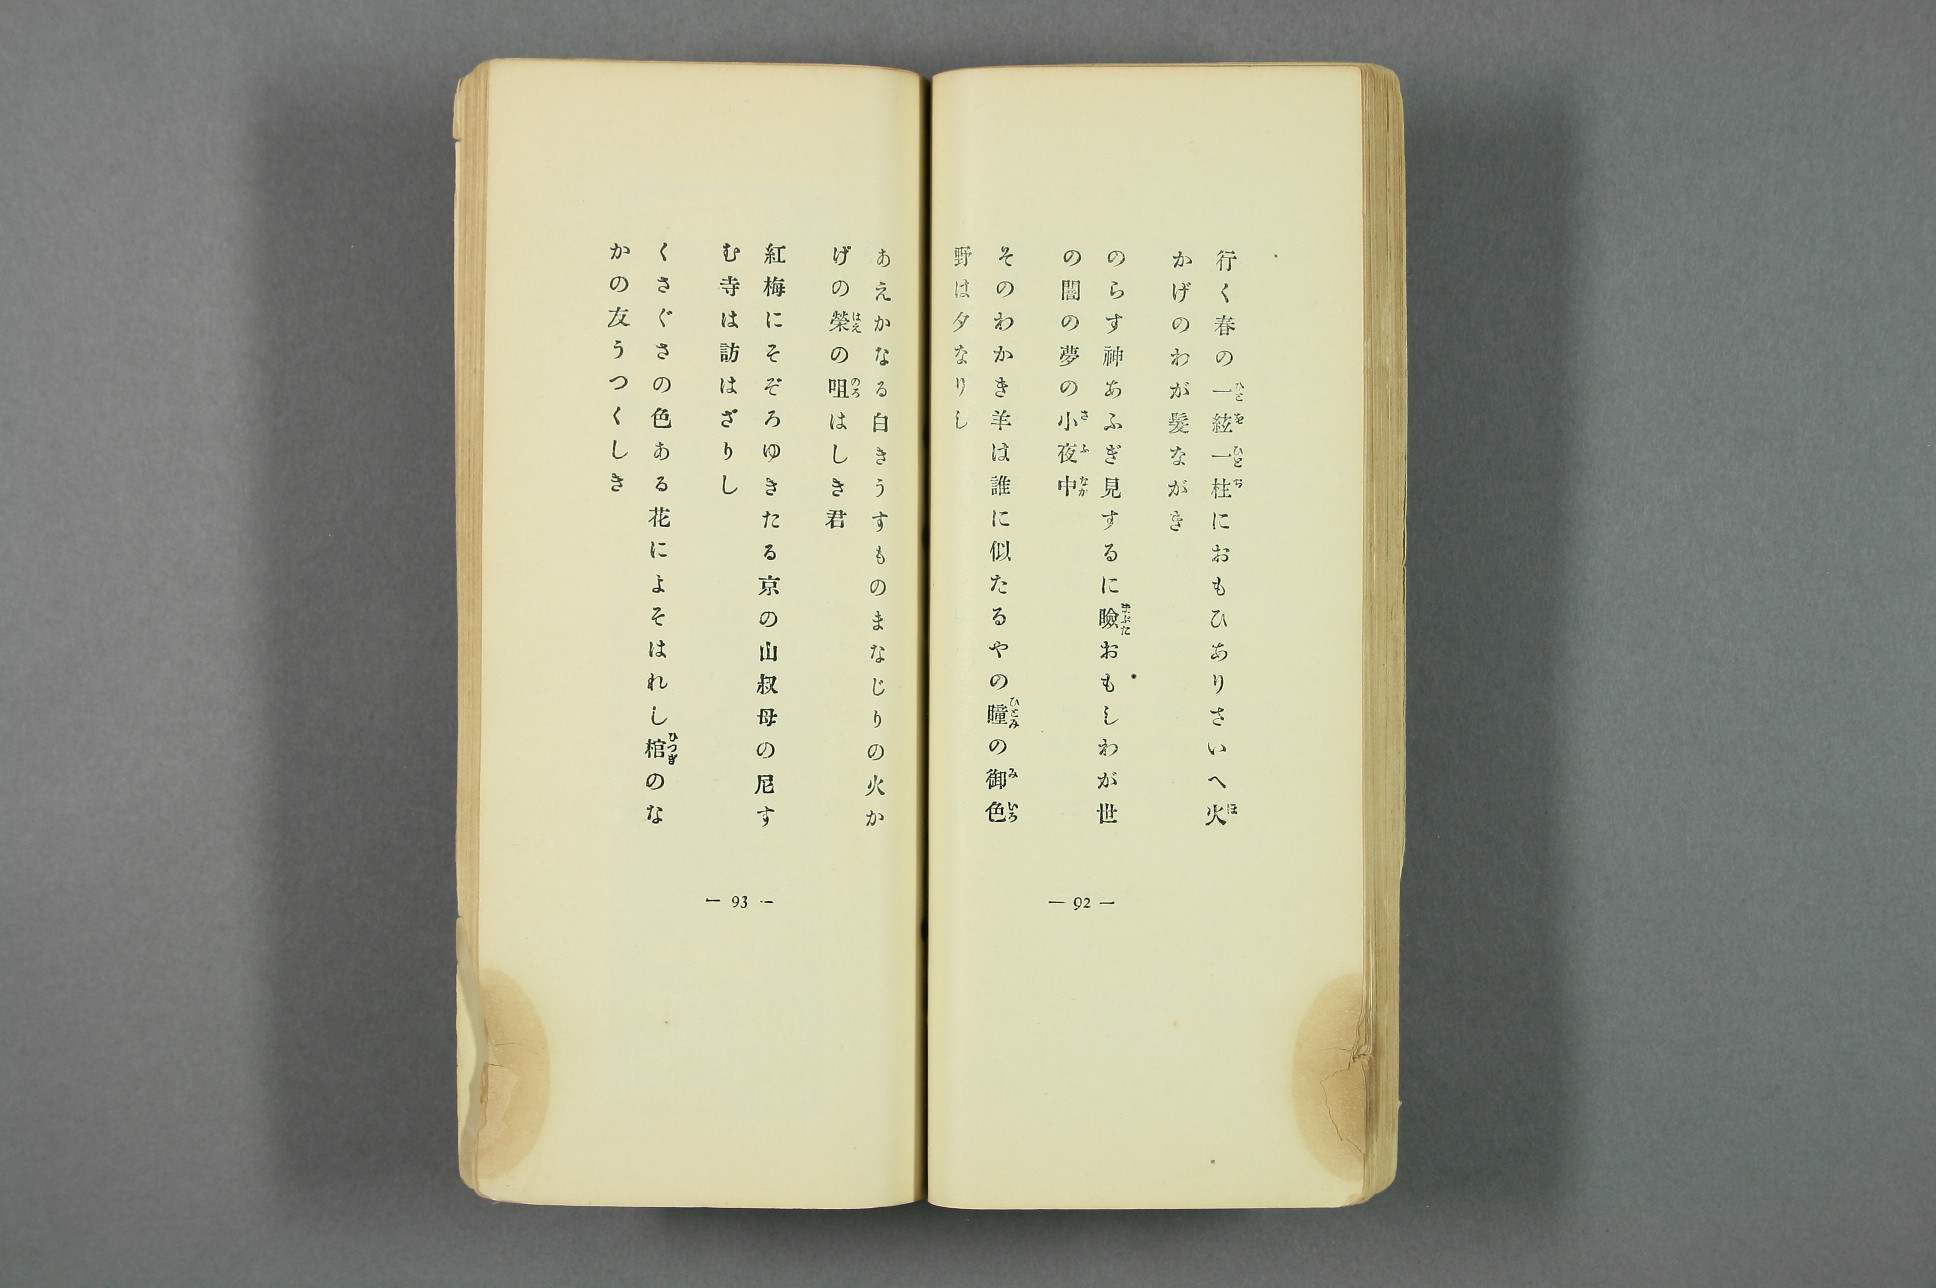 行く春の一絃一柱におもひありさいへ火
かげのわが髮ながき
のらす神あふぎ見するに瞼おもしわが世
の闇の夢の小夜中
そのわかき羊は誰に似たるやの瞳の御色
野は夕なりし
— 92 —
あえかなる白きうすものまなじりの火か
げの榮の咀はしき君
紅梅にそぞろゆきたる京の山叔母の尼す
む寺は訪はざりし
くさぐさの色ある花によそはれし棺のな
かの友うつくしき
— 93 —